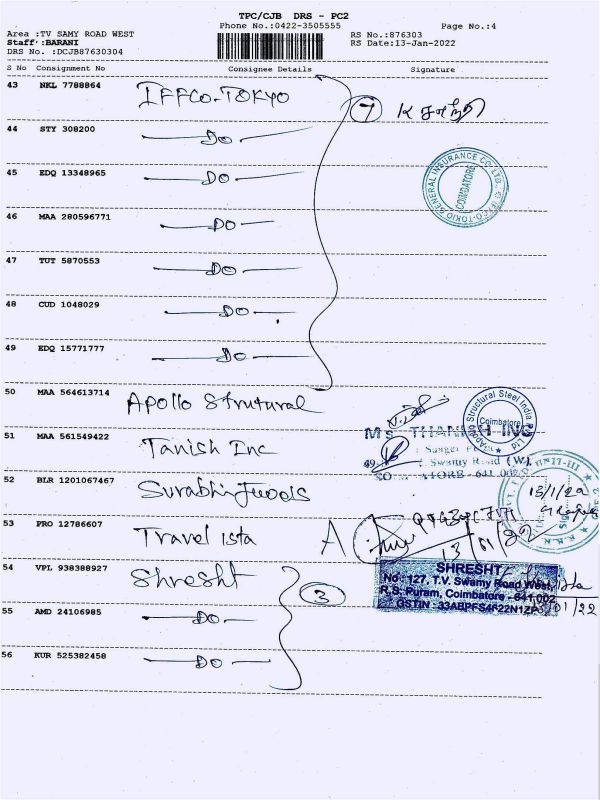 TPC/CJB DRS - PC2
Phone No.:0422-3505555
Page No.:4
Area :TV SAMY ROAD WEST
Staff :BARANI
DRS No. :DCJB87630304
RS No.:876303
RS Date:13-Jan-2022
S No Consignment No Consignee Details Signature
43 NKL 7788864 IFFCO-TOKYO 7
44 STY 308200 DO
45 EDQ 13348965 DO
GENERAL INSURANCE CO. LTD. IFFCO-TOKIO
COIMBATORE
46 MAA 280596771 DO
47 TUT 5870553 DO
48 CUD 1048029 DO
49 EDQ 15771777 DO
50 MAA 564613714 Apollo Strutural
Structural Steel India
Coimbatore
51 MAA 561549422 Tanish Inc
Swamy Road (W),
52 BLR 1201067467 Surabhi Foods
13/1/22
53 PRO 12786607 Travel ista
13/01/22
54 VPL 938388927 Shresht 3
SHRESHT
No : 127, T.V. Swamy Road West,
R.S. Puram, Coimbatore - 641 002
GSTIN : 33ABPFS4822N1ZP
55 AMD 24106985 DO
56 KUR 525382458 DO